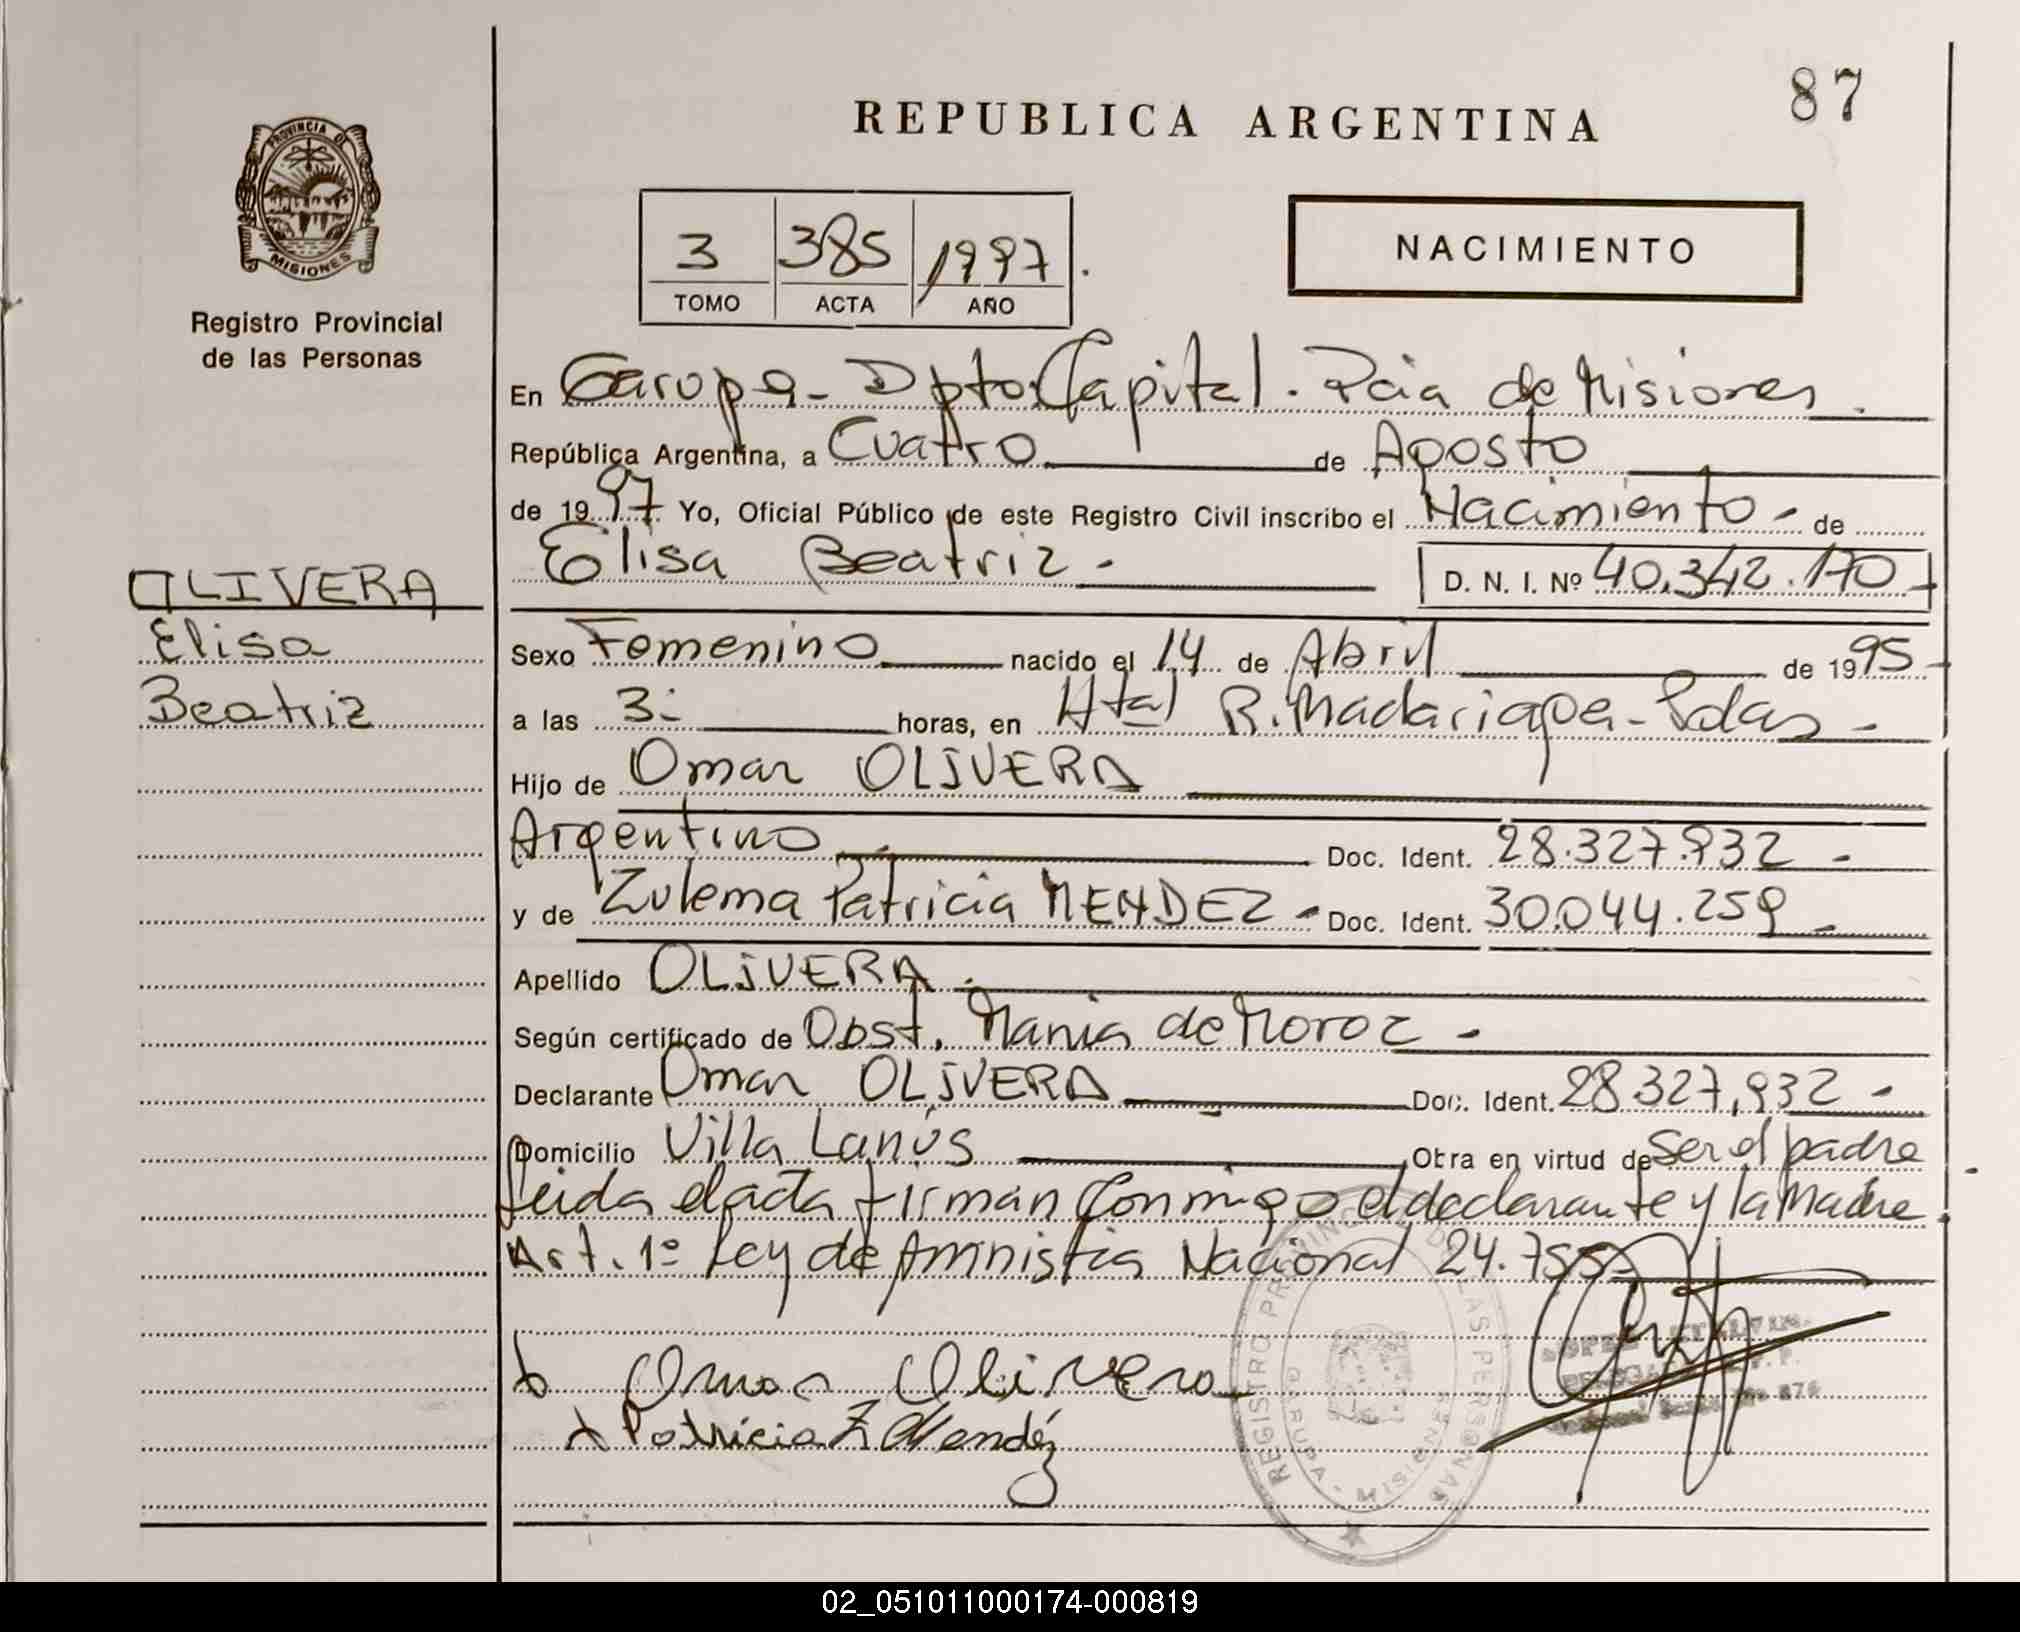 87
REPUBLICA ARGENTINA
PROVINCIA DE
MISIONES
Registro Provincial
de las Personas
3 385 1997
TOMO ACTA AÑO
NACIMIENTO
En Garupa - Dpto Capital. Pcia de Misiones.
República Argentina, a Cuatro de Agosto
de 1997 Yo, Oficial Público de este Registro Civil inscribo el Nacimiento - de
Elisa Beatriz - D. N. I. Nº 40.342.170
OLIVERA
Elisa
Beatriz
Sexo Femenino nacido el 14 de Abril de 1995
a las 3: horas, en Htal R. Madariaga - Pdas -
Hijo de Omar OLIVERA
Argentino Doc. Ident. 28.327.932 -
y de Zulema Patricia MENDEZ - Doc. Ident. 30.044.259
Apellido OLIVERA.
Según certificado de Obst. Mania de Moroz -
Declarante Omar OLIVERA Doc. Ident. 28.327,932 -
Domicilio Villa Lanús Obra en virtud de Ser el padre
Leida el acta firman conmigo el declarante y la Madre.
Art. 1º Ley de Amnistia Nacional 24.755
Omar Olivera
Patricia Z Mendéz
REGISTRO PROVINCIAL DE LAS PERSONAS
GARUPA - MISIONES
02_051011000174-000819